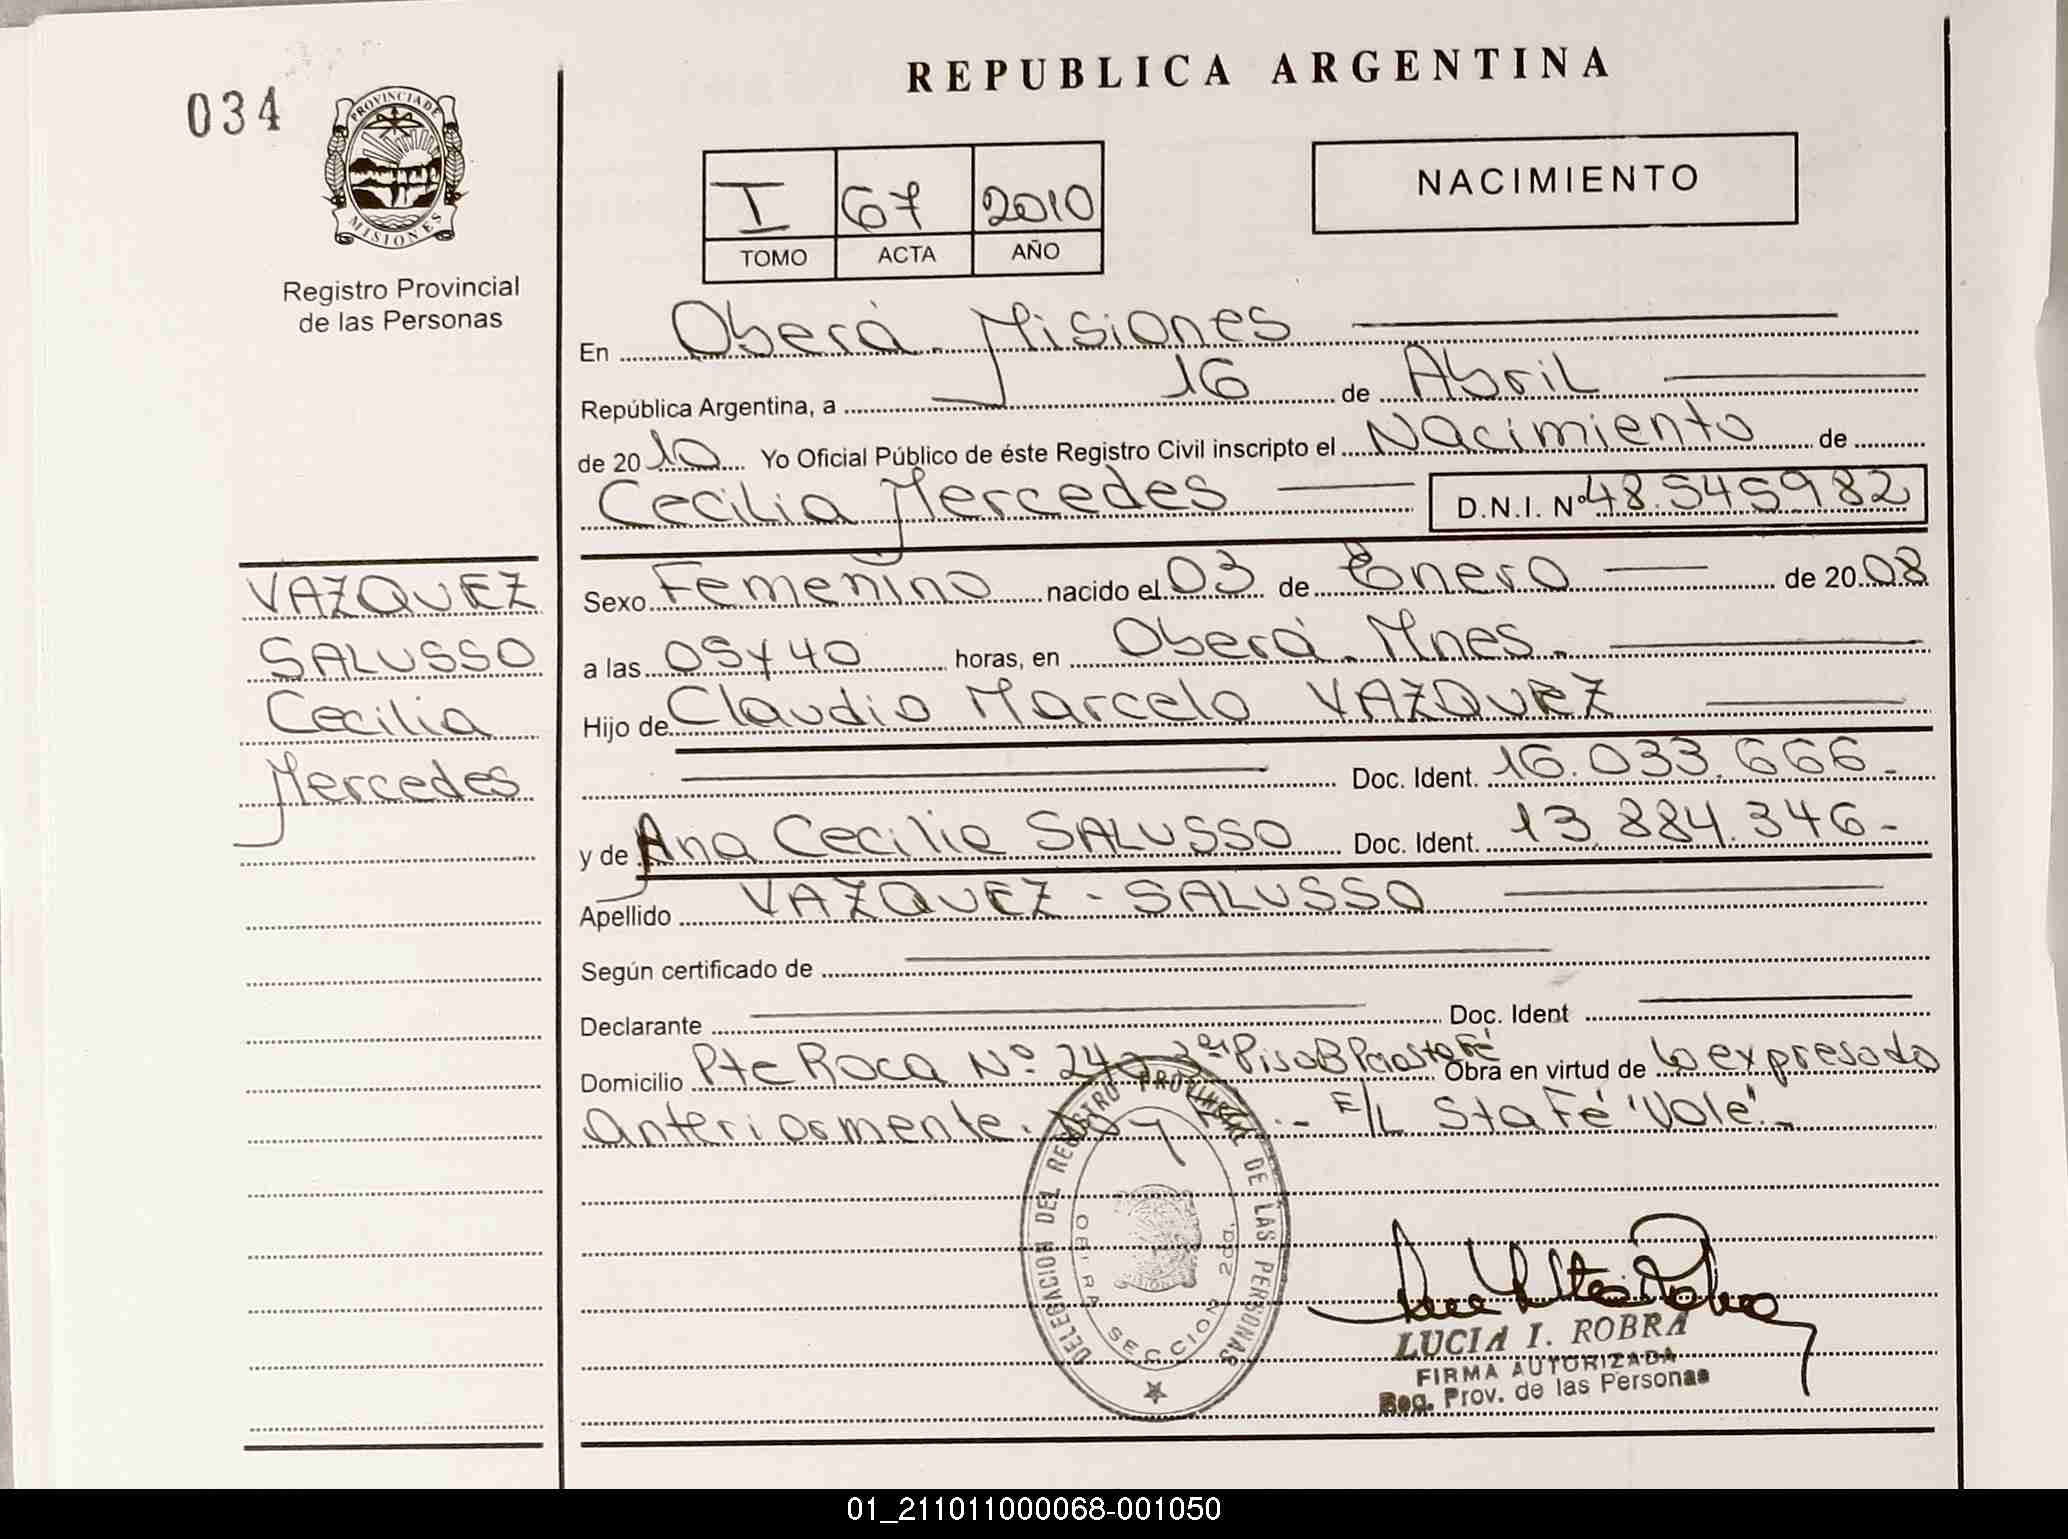 REPUBLICA ARGENTINA
034
PROVINCIA DE
MISIONES
Registro Provincial
de las Personas
I 67 2010
TOMO ACTA AÑO
NACIMIENTO
En Oberá Misiones
República Argentina, a 16 de Abril
de 2010 Yo Oficial Público de éste Registro Civil inscripto el Nacimiento de
Cecilia Mercedes D.N.I. Nº 48.545982
VAZQUEZ
SALUSSO
Cecilia
Mercedes
Sexo Femenino nacido el 03 de Enero de 2008
a las 05y40 horas, en Oberá. Mnes.
Hijo de Claudio Marcelo VAZQUEZ
Doc. Ident. 16.033.666-
y de Ana Cecilia SALUSSO Doc. Ident. 13.884.346-
Apellido VAZQUEZ - SALUSSO
Según certificado de
Declarante Doc. Ident
Domicilio Pte Roca Nº Piso B Pcia Sta Fé Obra en virtud de lo expresado
Anteriormente. - E/L Sta Fé "Vale".-
DELEGACION DEL REGISTRO PROVINCIAL DE LAS PERSONAS
SECCION 2da.
LUCIA I. ROBRA
FIRMA AUTORIZADA
Reg. Prov. de las Personas
01_211011000068-001050